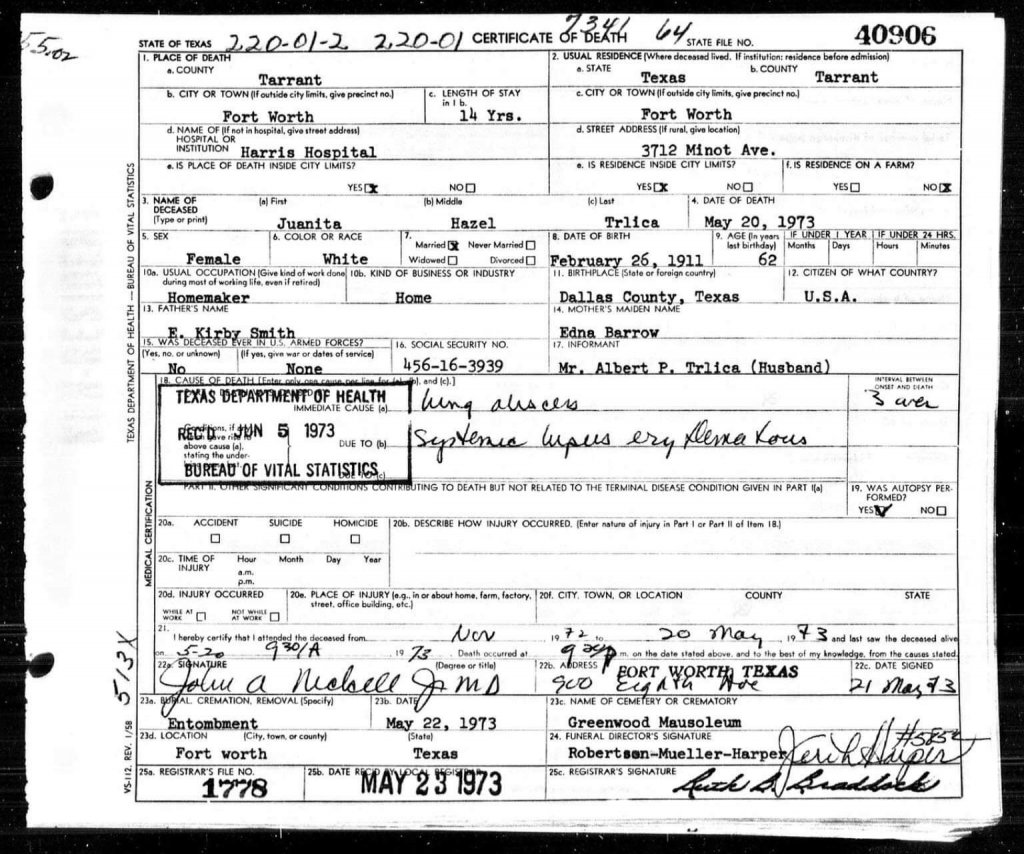 55.02
7341 64
STATE OF TEXAS 220-01-2 220-01 CERTIFICATE OF DEATH STATE FILE NO. 40906
1. PLACE OF DEATH
a. COUNTY
Tarrant
2. USUAL RESIDENCE (Where deceased lived. If institution: residence before admission)
a. STATE b. COUNTY
Texas Tarrant
b. CITY OR TOWN (If outside city limits, give precinct no.)
Fort Worth
c. LENGTH OF STAY in 1 b.
14 Yrs.
c. CITY OR TOWN (If outside city limits, give precinct no.)
Fort Worth
d. NAME OF (If not in hospital, give street address)
HOSPITAL OR
INSTITUTION Harris Hospital
d. STREET ADDRESS (If rural, give location)
3712 Minot Ave.
e. IS PLACE OF DEATH INSIDE CITY LIMITS?
YES X NO
e. IS RESIDENCE INSIDE CITY LIMITS?
YES X NO
f. IS RESIDENCE ON A FARM?
YES NO X
3. NAME OF DECEASED (Type or print)
(a) First (b) Middle (c) Last
Juanita Hazel Trlica
4. DATE OF DEATH
May 20, 1973
5. SEX
Female
6. COLOR OR RACE
White
7.
Married X Never Married
Widowed Divorced
8. DATE OF BIRTH
February 26, 1911
9. AGE (In years last birthday)
62
IF UNDER 1 YEAR IF UNDER 24 HRS.
Months Days Hours Minutes
10a. USUAL OCCUPATION (Give kind of work done during most of working life, even if retired)
Homemaker
10b. KIND OF BUSINESS OR INDUSTRY
Home
11. BIRTHPLACE (State or foreign country)
Dallas County, Texas
12. CITIZEN OF WHAT COUNTRY?
U.S.A.
13. FATHER'S NAME
E. Kirby Smith
14. MOTHER'S MAIDEN NAME
Edna Barrow
15. WAS DECEASED EVER IN U.S. ARMED FORCES?
(Yes, no, or unknown) (If yes, give war or dates of service)
No None
16. SOCIAL SECURITY NO.
456-16-3939
17. INFORMANT
Mr. Albert P. Trlica (Husband)
18. CAUSE OF DEATH [Enter only one cause per line for (a), (b), and (c).]
INTERVAL BETWEEN ONSET AND DEATH
TEXAS DEPARTMENT OF HEALTH
REC'D JUN 5 1973
BUREAU OF VITAL STATISTICS
IMMEDIATE CAUSE (a) lung abscess 3
Conditions, if
above cause (a),
stating the under-
DUE TO (b) Systemic lupus erythematous
DUE TO (c)
PART II. OTHER SIGNIFICANT CONDITIONS CONTRIBUTING TO DEATH BUT NOT RELATED TO THE TERMINAL DISEASE CONDITION GIVEN IN PART I(a)
19. WAS AUTOPSY PERFORMED?
YES ✓ NO
20a. ACCIDENT SUICIDE HOMICIDE
20b. DESCRIBE HOW INJURY OCCURRED. (Enter nature of injury in Part I or Part II of Item 18.)
20c. TIME OF INJURY Hour Month Day Year
a.m.
p.m.
20d. INJURY OCCURRED
WHILE AT WORK NOT WHILE AT WORK
20e. PLACE OF INJURY (e.g., in or about home, farm, factory, street, office building, etc.)
20f. CITY, TOWN, OR LOCATION COUNTY STATE
21.
I hereby certify that I attended the deceased from Nov 1972 to 20 May 1973 and last saw the deceased alive
on 5-20 1973. Death occurred at m. on the date stated above, and to the best of my knowledge, from the causes stated.
22a. SIGNATURE (Degree or title)
John A Nickell Jr MD
22b. ADDRESS
FORT WORTH, TEXAS
900 Eighth Ave
22c. DATE SIGNED
21 May 73
23a. BURIAL, CREMATION, REMOVAL (Specify)
Entombment
23b. DATE
May 22, 1973
23c. NAME OF CEMETERY OR CREMATORY
Greenwood Mausoleum
23d. LOCATION (City, town, or county) (State)
Fort worth Texas
24. FUNERAL DIRECTOR'S SIGNATURE
Robertson-Mueller-Harper Jeri L Harper #5852
25a. REGISTRAR'S FILE NO.
1778
25b. DATE REC'D BY LOCAL REGISTRAR
MAY 23 1973
25c. REGISTRAR'S SIGNATURE
Ruth G. Braddock
TEXAS DEPARTMENT OF HEALTH — BUREAU OF VITAL STATISTICS
MEDICAL CERTIFICATION
VS-112, REV. 1/58
513X